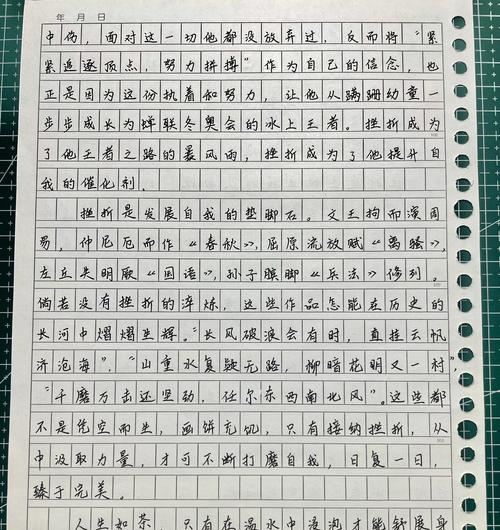 年 月 日
中伤，面对这一切他都没放弃过，反而将“紧
紧追逐顶点，努力拼搏”作为自己的信念，也
正是因为这份执着和努力，让他从蹒跚幼童一
步步成长为蝉联冬奥会的冰上王者。挫折成为
了他王者之路的暴风雨，挫折成为了他提升自
我的催化剂。
挫折是发展自我的垫脚石。文王拘而演周
易，仲尼厄而作《春秋》，屈原流放赋《离骚》，
左丘失明厥《国语》，孙子膑脚《兵法》修列。
倘若没有挫折的淬炼，这些作品怎能在历史的
长河中熠熠生辉。“长风破浪会有时，直挂云帆
济沧海”，“山重水复疑无路，柳暗花明又一村”，
“千磨万击还坚劲，任尔东西南北风”。这些都
不是凭空而生，画饼充饥，只有接纳挫折，从
中汲取力量，才可不断打磨自我，日复一日，
臻于完美。
人生如茶，只有在温水中浸泡才能舒展身